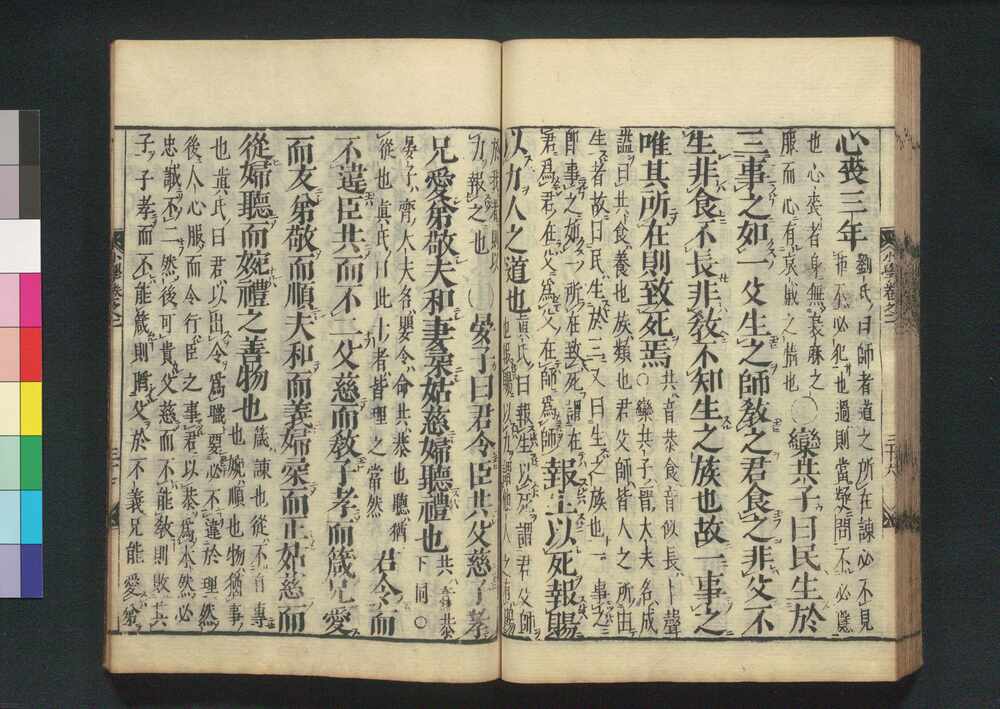 心喪三年
劉氏曰師者道之所在諫必不見
拒不必犯也過則當疑問不必隱
也心喪者身無衰麻之
服而心有哀戚之情也
○欒共子曰民生於
三事之如一父生之師教之君食之非父不
生非食不長非教不知生之族也故一事之
唯其所在則致死焉
共音恭食音似長上聲
○欒共子晉大夫名成
諡曰共食養也族類也君父師皆人之所由
生者故曰民生於三又曰生之族也一事之
師事之如一所在致死謂在
君爲君在父爲父在師爲師
報生以死報賜
以力人之道也
眞氏曰報生以死謂君父師
也報賜以力謂他人之有賜
小學卷之二
三十六
於我者則以
力報之也
○晏子曰君令臣共父慈子孝
兄愛弟敬夫和妻柔姑慈婦聽禮也
共音恭
下同○
晏子齊大夫名嬰令命共恭也聽猶
從也眞氏曰此十者皆理之當然
君令而
不違臣共而不二父慈而教子孝而箴兄愛
而友弟敬而順夫和而義妻柔而正姑慈而
從婦聽而婉禮之善物也
箴諫也從不自專
也婉順也物猶事
也眞氏曰君以出令爲職要必不違於理然
後人心服而令行臣之事君以共爲本然必
忠誠不二然後可貴父慈而不能教則敗其
子子孝而不能箴則陷父於不義兄能愛弟
小學卷之二
三十七